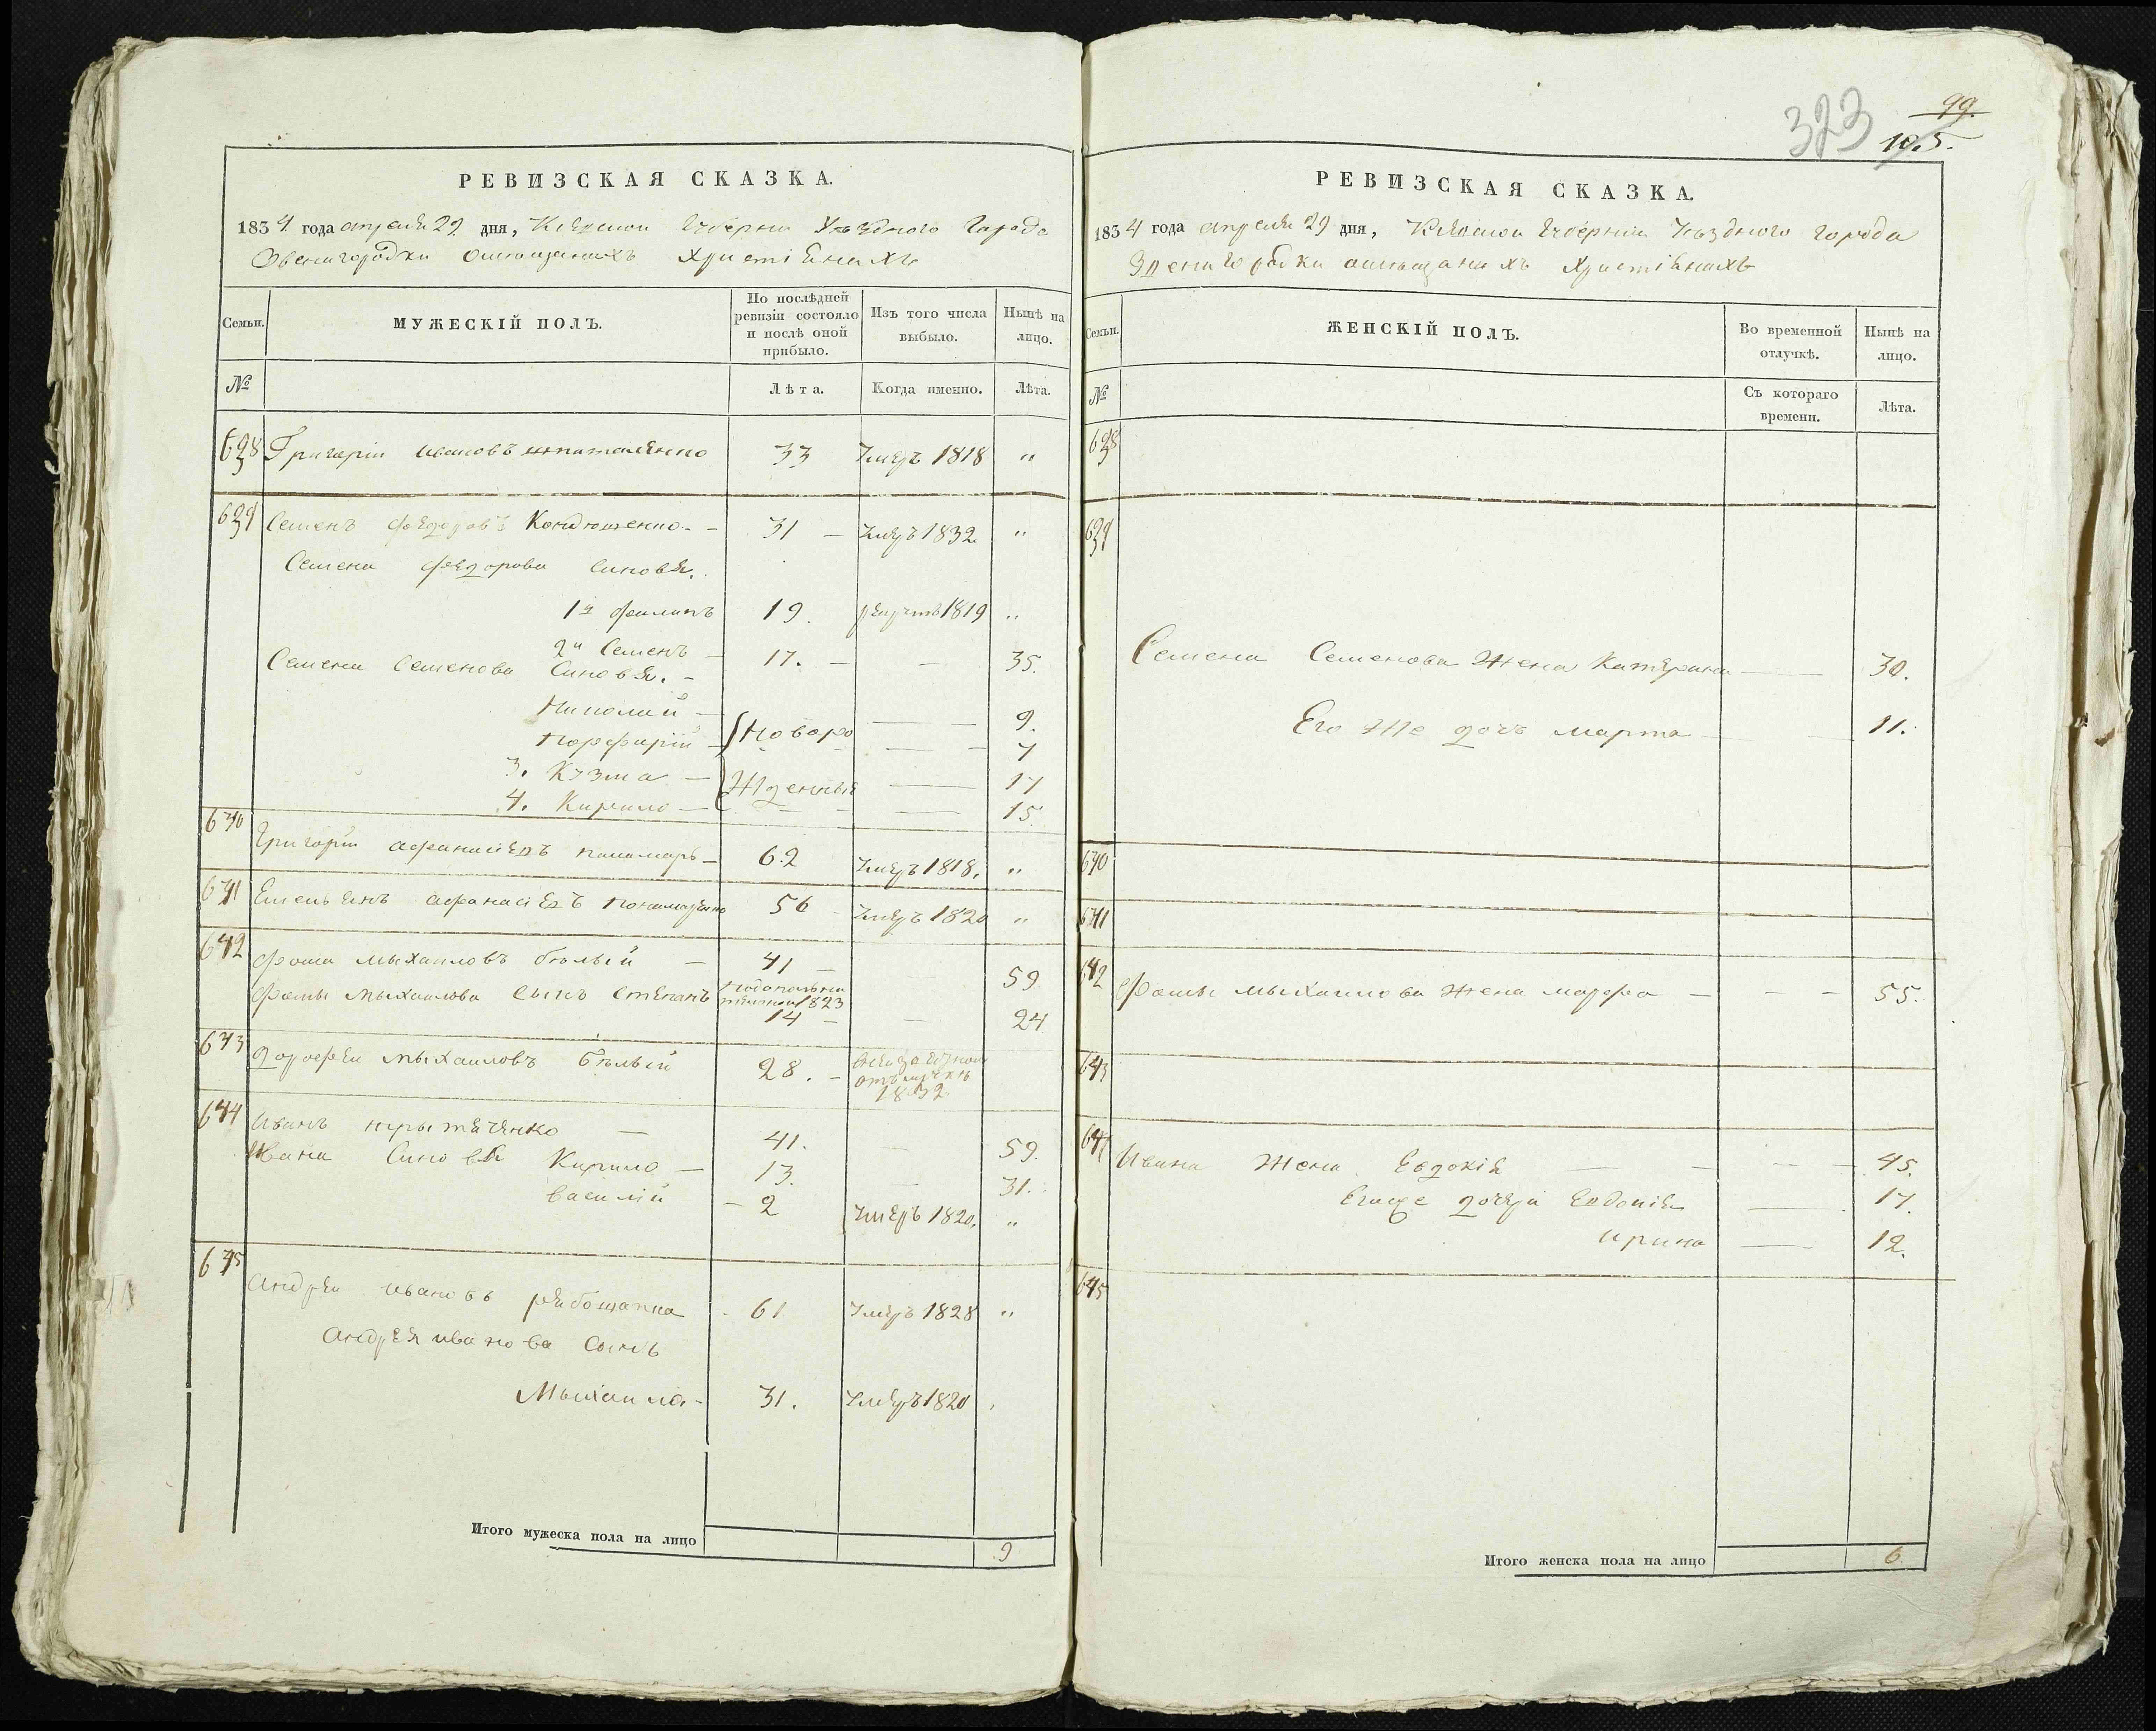 323
99.
105.
РЕВИЗСКАЯ СКАЗКА.
1834 года апреля 29 дня, Кіевской Губерніи Уѣзднаго Города
Звенигородки омѣщанахъ христіянахъ
Семьи.
МУЖЕСКІЙ ПОЛЪ.
По послѣдней ревизіи состояло и послѣ оной прибыло.
Изъ того числа выбыло.
Нынѣ на лицо.
№
Лѣта.
Когда именно.
Лѣта.
Григорій ивановъ 33 Умеръ 1818 "
Семенъ федоровъ Кондюшенко 31 Умеръ 1832 "
Семена федорова синовя.
1й филипъ 19. 1819 "
2й Семенъ 17. 35.
Семена Семенова Синовя.
Николай Новоро 9.
Порфирій 7
3. Кузма жденныя 17
4. Кирило 15.
Григорій афанасіевъ панамарь 62 Умеръ 1818. "
Емельянъ афанасіевъ 56 Умеръ 1820 "
фома мыхаиловъ бѣлый 41 59
фомы мыхаилова сынъ степанъ 1823 14 24
дорофей мыхаиловъ бѣлый 28. 1832
Иванъ 41. 59.
Ивана Синовя Кирило 13. 31.
василій 2 Умеръ 1820. "
645
Андрей ивановъ рябошапка 61 Умеръ 1828 "
Андрея иванова сынъ
Мыхаила 31. Умеръ 1820
Итого мужеска пола на лицо 9
РЕВИЗСКАЯ СКАЗКА.
1834 года апреля 29 дня, Кіевской Губерніи Уѣзднаго города
Звенигородки омѣщанахъ христіянахъ
Семьи.
ЖЕНСКІЙ ПОЛЪ.
Во временной отлучкѣ.
Нынѣ на лицо.
№
Съ котораго времени.
Лѣта.
Семена Семенова жена Катерина 30.
Его же дочь марта 11.
фомы мыхаилова жена марфа 55.
Ивана жена Евдокія 45.
Егоже дочери Евдокія 17.
ирина 12.
645
Итого женска пола на лицо 6.